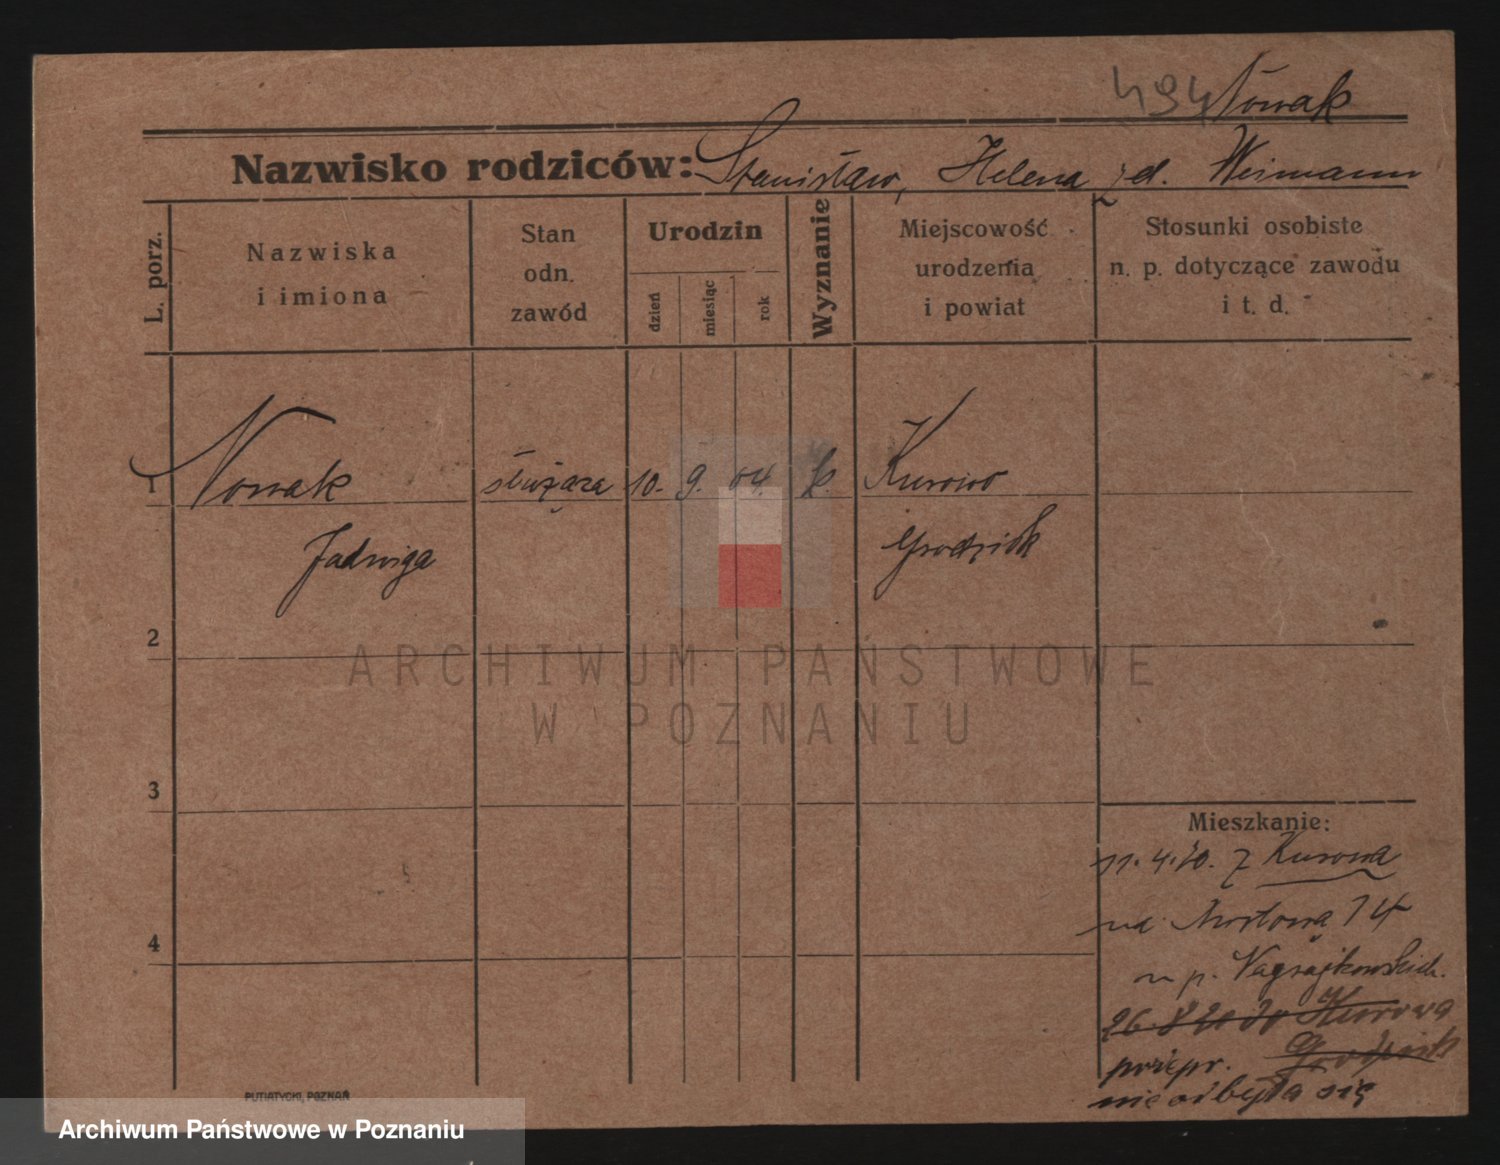 494 Nowak
Nazwisko rodziców: Stanisław, Helena zd. Weimann
L. porz.
Nazwiska
i imiona
Stan
odn.
zawód
Urodzin
dzień
miesiąc
rok
Wyznanie
Miejscowość
urodzenia
i powiat
Stosunki osobiste
n. p. dotyczące zawodu
i t. d.
1 Nowak służąca 10. 9. 04. k. Kurowo
Jadwiga Grodzisk
2
ARCHIWUM PAŃSTWOWE
W POZNANIU
3
Mieszkanie:
11.4.20. z Kurowa
na Mostowa 14
4
p.
26 8 20 do Kurowa
przepr. Grodzisk
nie odbyła się
PUTIATYCKI, POZNAŃ
Archiwum Państwowe w Poznaniu